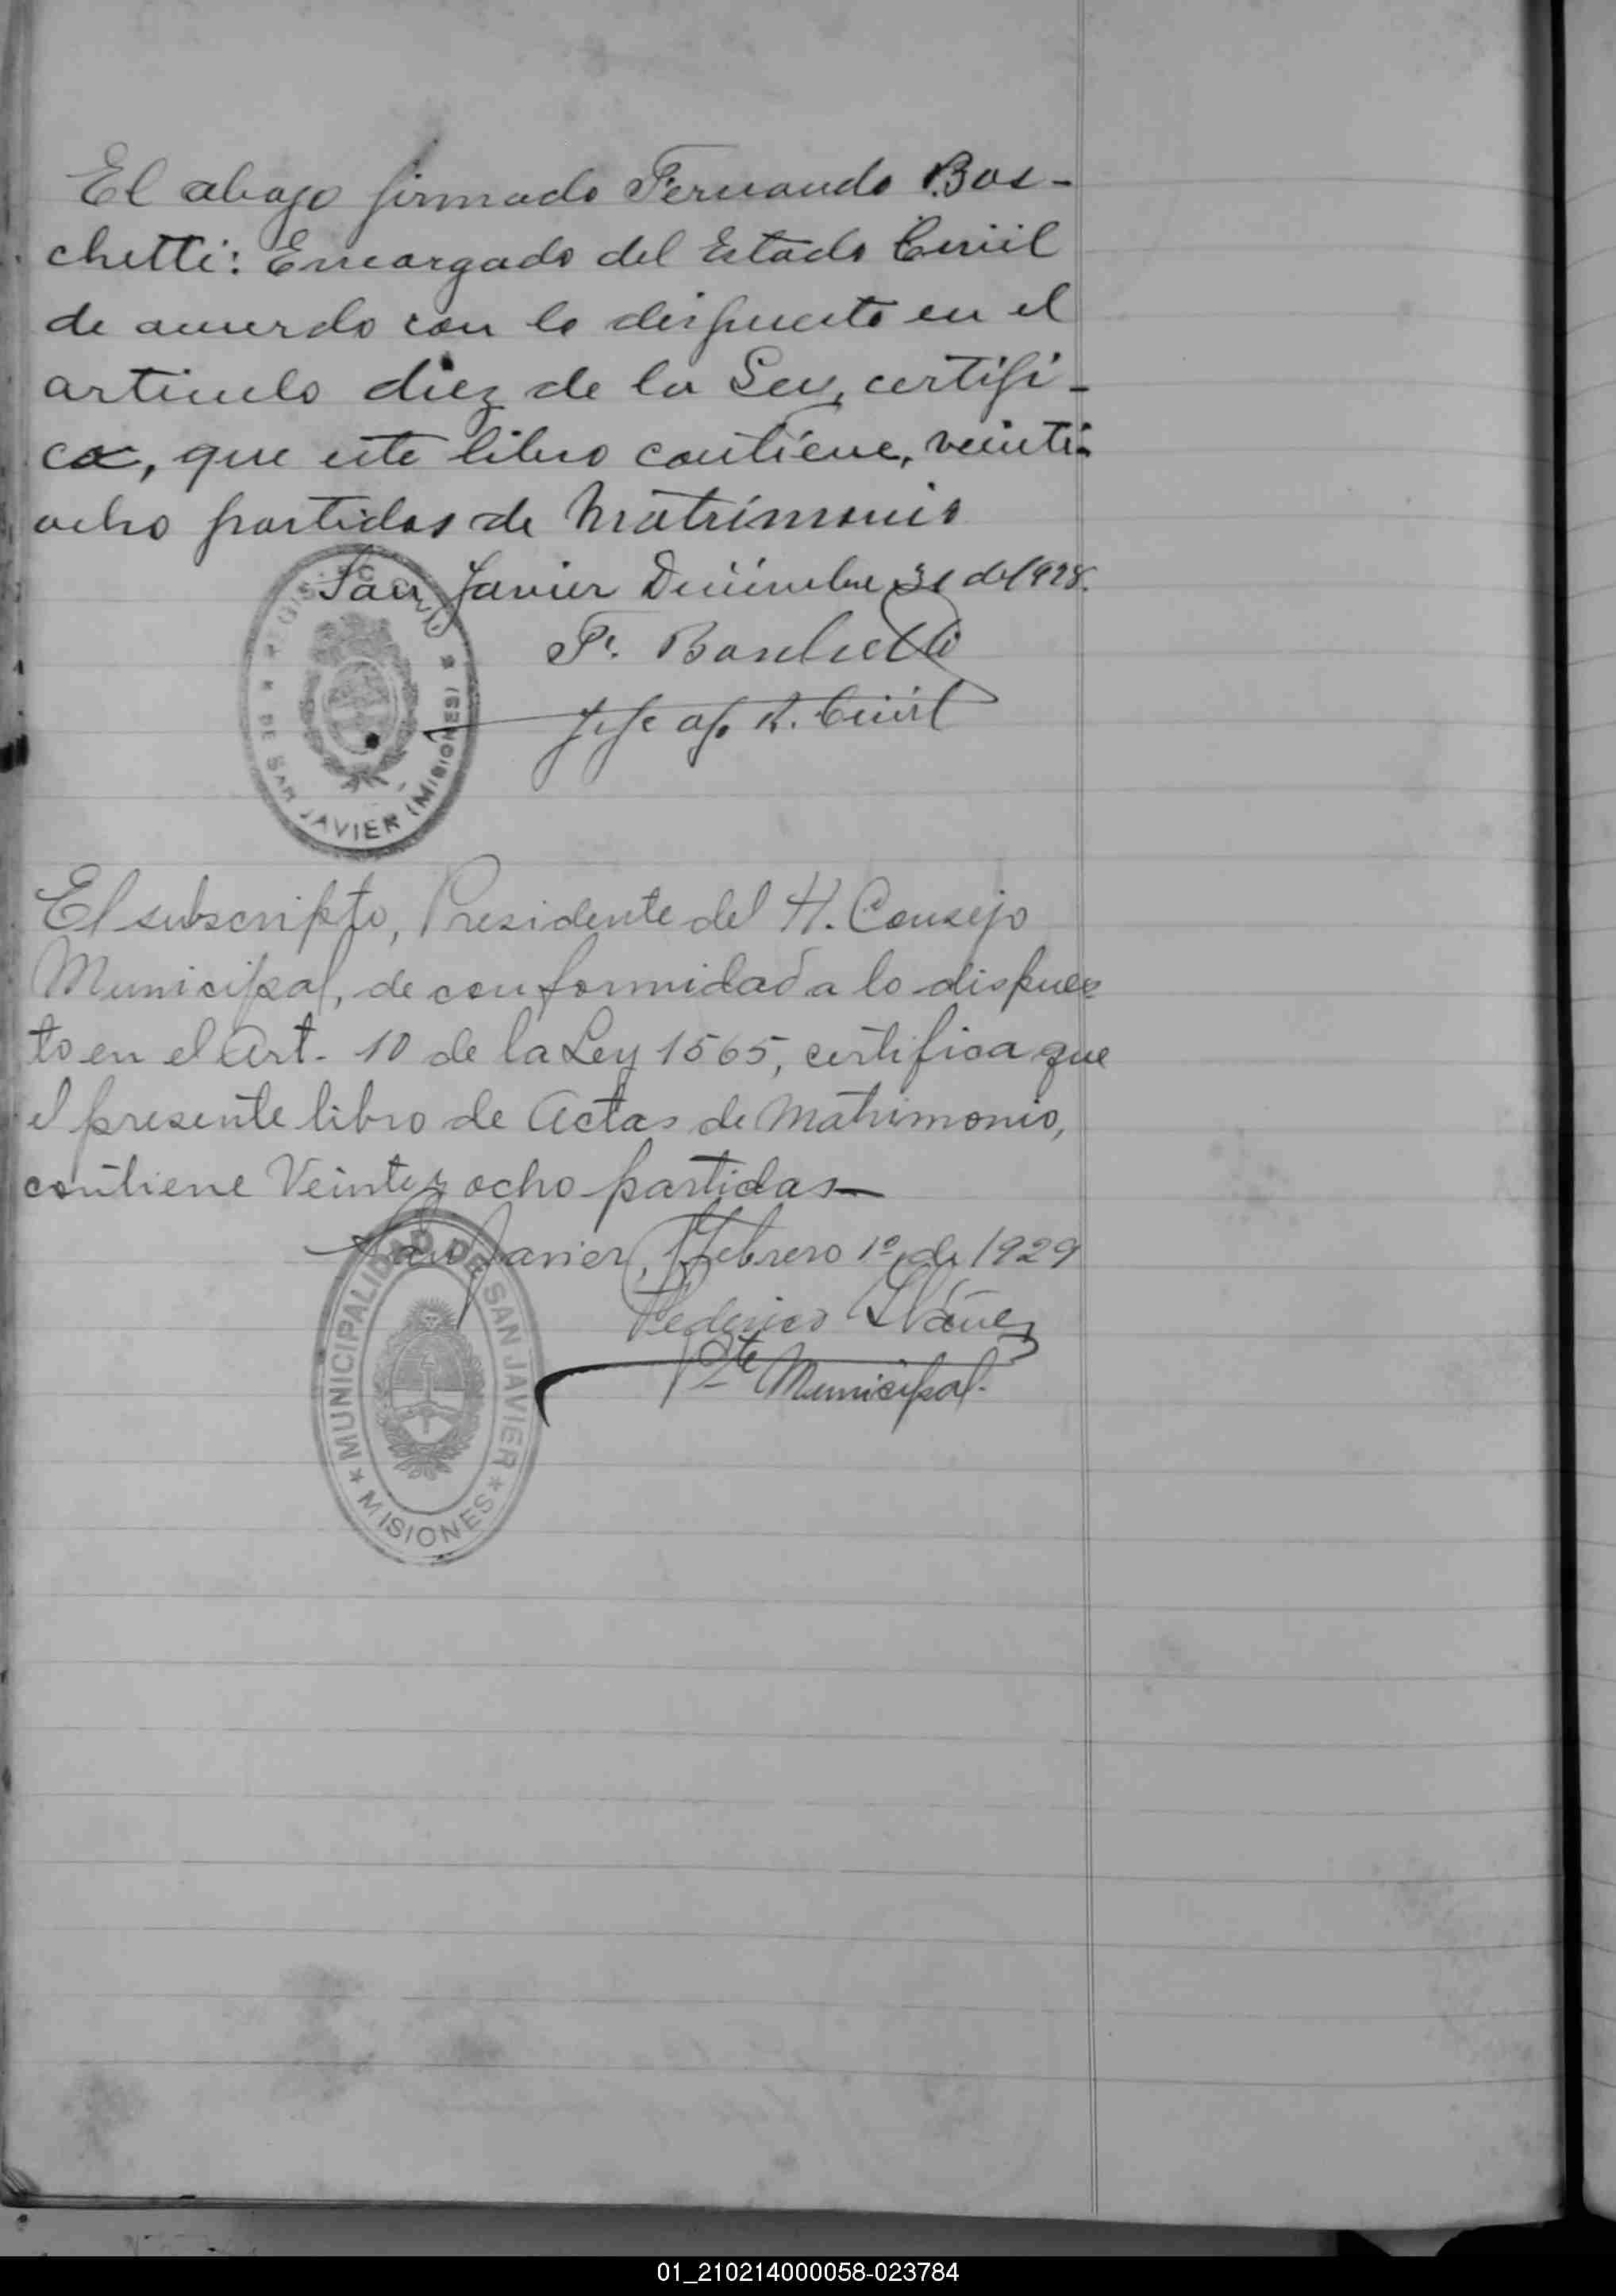 El abajo firmado Fernando Bos-
chetti: Encargado del Estado Civil
de acuerdo con lo dispuesto en el
articulo diez de la Ley, certifi-
ca, que este libro contiene, veinti-
ocho partidas de Matrimonio
San Javier Diciembre 31 del 1928.
F. Boschetti
Jefe of. R. Civil
REGISTRO CIVIL
DE SAN JAVIER (MISIONES)
El subscripto, Presidente del H. Consejo
Municipal, de conformidad a lo dispues
to en el Art. 10 de la Ley 1565, certifica que
el presente libro de Actas de Matrimonio,
contiene Veinte y ocho partidas—
San Javier, Febrero 1º de 1929
Federico Ybáñez
Pte Municipal.
MUNICIPALIDAD DE SAN JAVIER
* MISIONES *
01_210214000058-023784